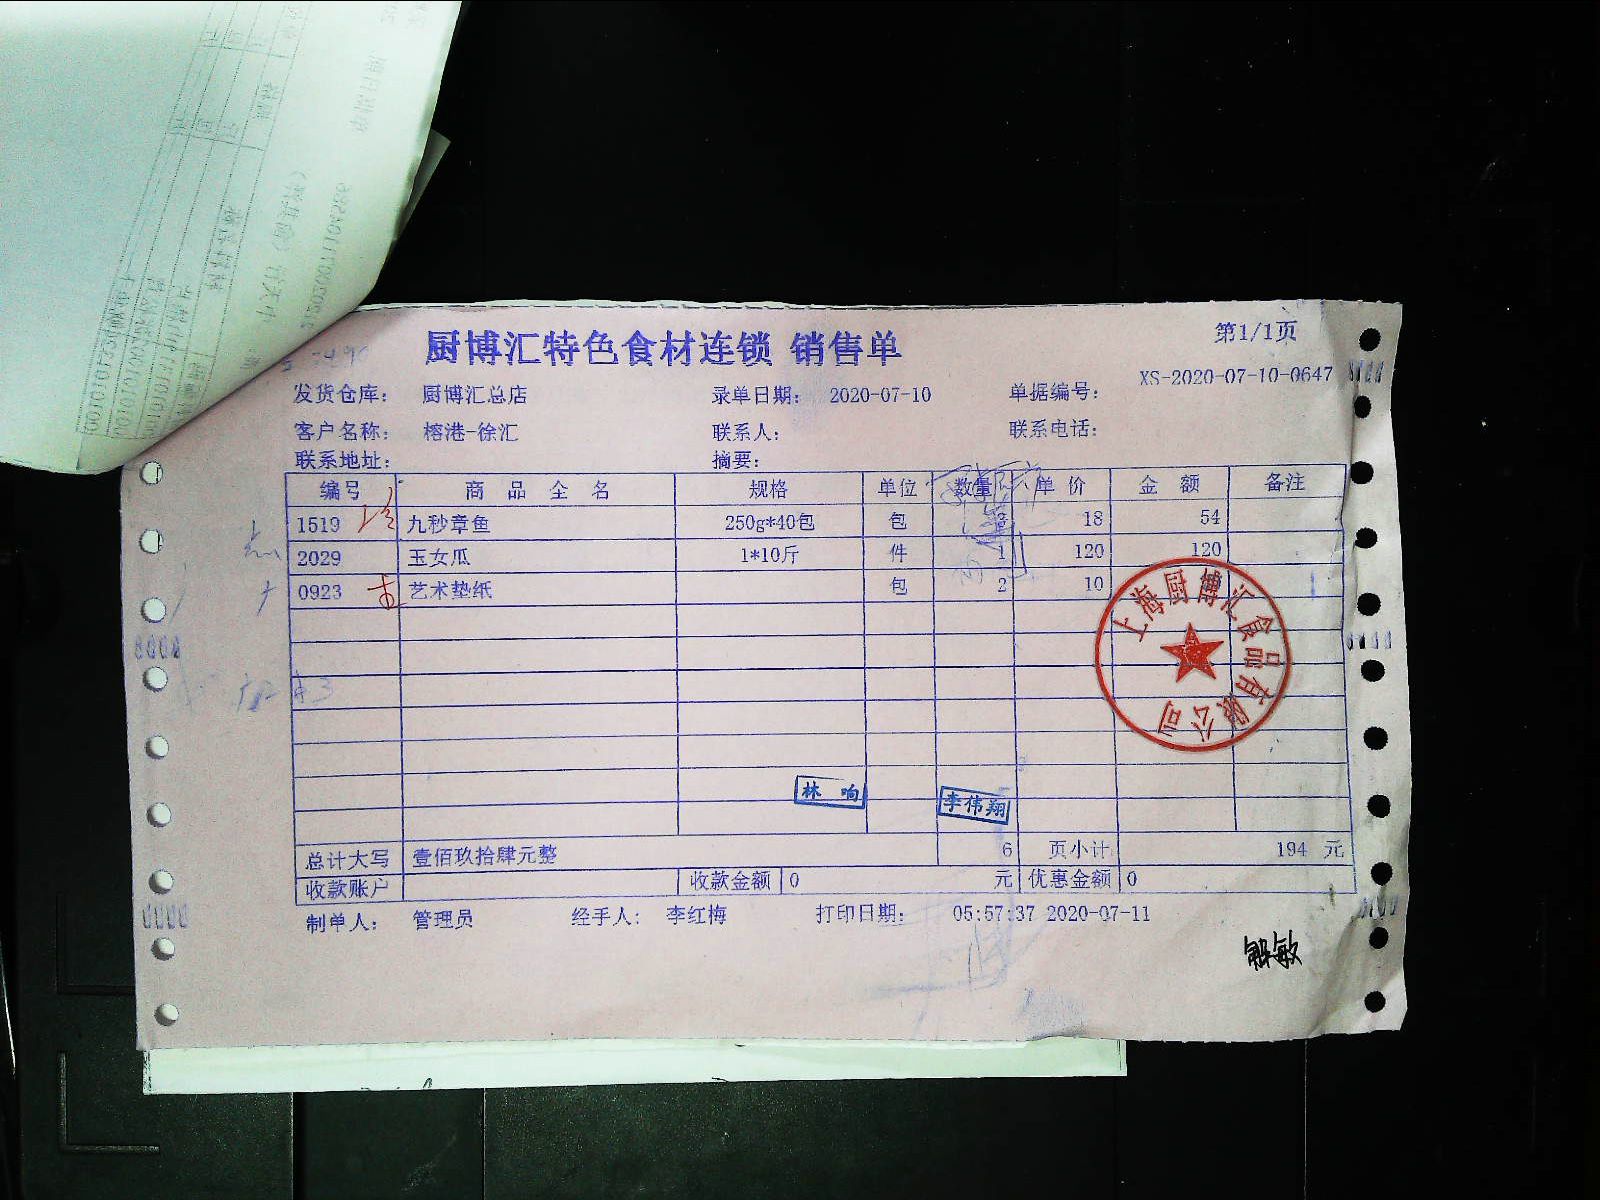 厨博汇特色食材连锁 销售单
第1/1页
发货仓库: 厨博汇总店 录单日期: 2020-07-10 单据编号: XS-2020-07-10-0647
客户名称: 榕港-徐汇 联系人: 联系电话:
联系地址: 摘要:
编号 商品全名 规格 单位 数量 单价 金额 备注
1519 九秒章鱼 250g*40包 包 18 54
2029 玉女瓜 1*10斤 件 1 120 120
0923 艺术垫纸 包 2 10
上海厨博汇食品有限公司
林响
李伟翔
总计大写 壹佰玖拾肆元整 6 页小计 194 元
收款账户 收款金额 0 元 优惠金额 0
制单人: 管理员 经手人: 李红梅 打印日期: 05:57:37 2020-07-11